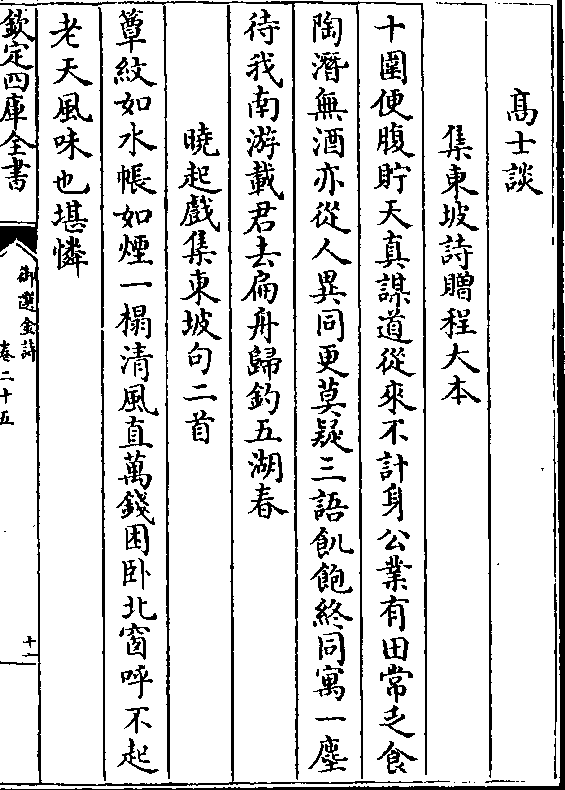 髙士談
集東坡詩贈程大本
十圍便腹貯天真謀道從來不計身公業有田常乏食
陶潛無酒亦從人異同更莫疑三語飢飽終同寓一塵
待我南游載君去扁舟歸釣五湖春
曉起戲集東坡句二首
簟紋如水帳如煙一榻清風直萬錢困卧北窗呼不起
老天風味也堪憐
欽定四庫全書
御選金詩
卷二十五
十一